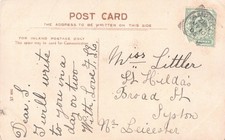 POST CARD
THE ADDRESS TO BE WRITTEN ON THIS SIDE
FOR INLAND POSTAGE ONLY
Dear L
I will write
to you in a
day or two
With Love
Miss Littler
St Hilda's
Broad St
Syston
Nr Leicester